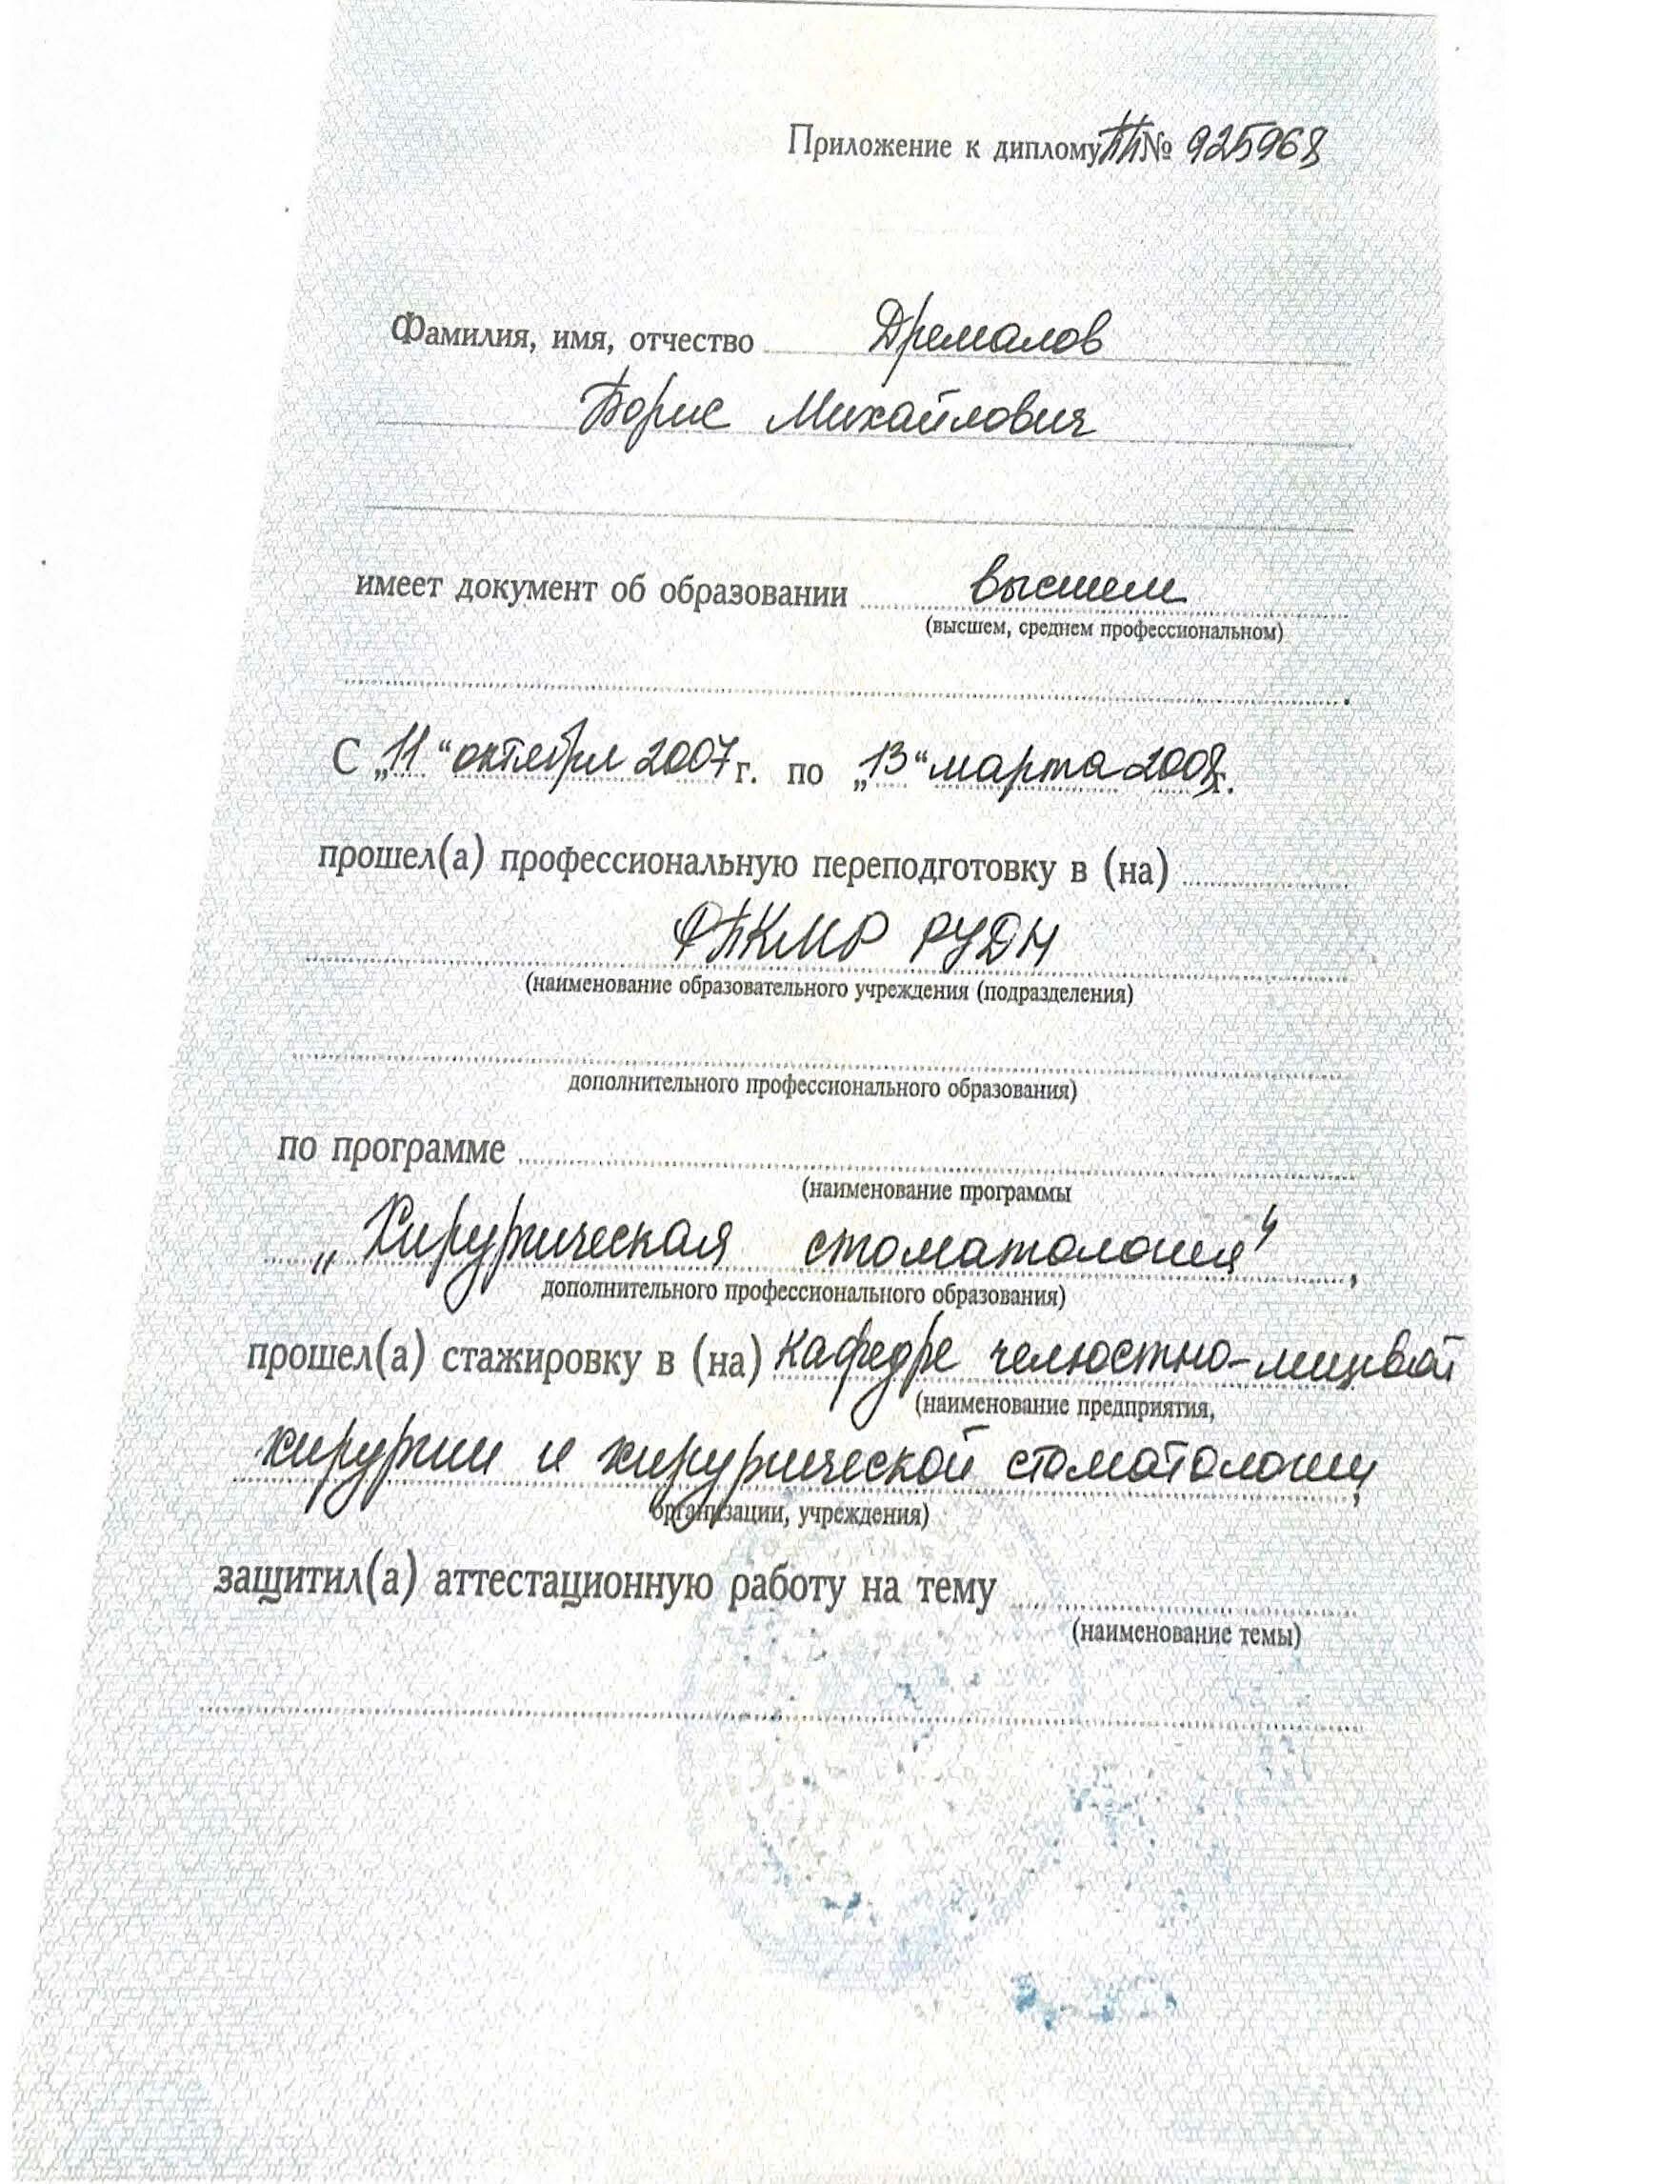 Приложение к диплому ПП № 925968
Фамилия, имя, отчество Дремалов
Борис Михайлович
имеет документ об образовании высшем
(высшем, среднем профессиональном)
С „11“ октября 2007 г. по „13“ марта 2008 г.
прошел(а) профессиональную переподготовку в (на)
ФПКМР РУДН
(наименование образовательного учреждения (подразделения)
дополнительного профессионального образования)
по программе
(наименование программы
„Хирургическая стоматология“,
дополнительного профессионального образования)
прошел(а) стажировку в (на) кафедре челюстно-лицевой
(наименование предприятия,
хирургии и хирургической стоматологии,
организации, учреждения)
защитил(а) аттестационную работу на тему
(наименование темы)